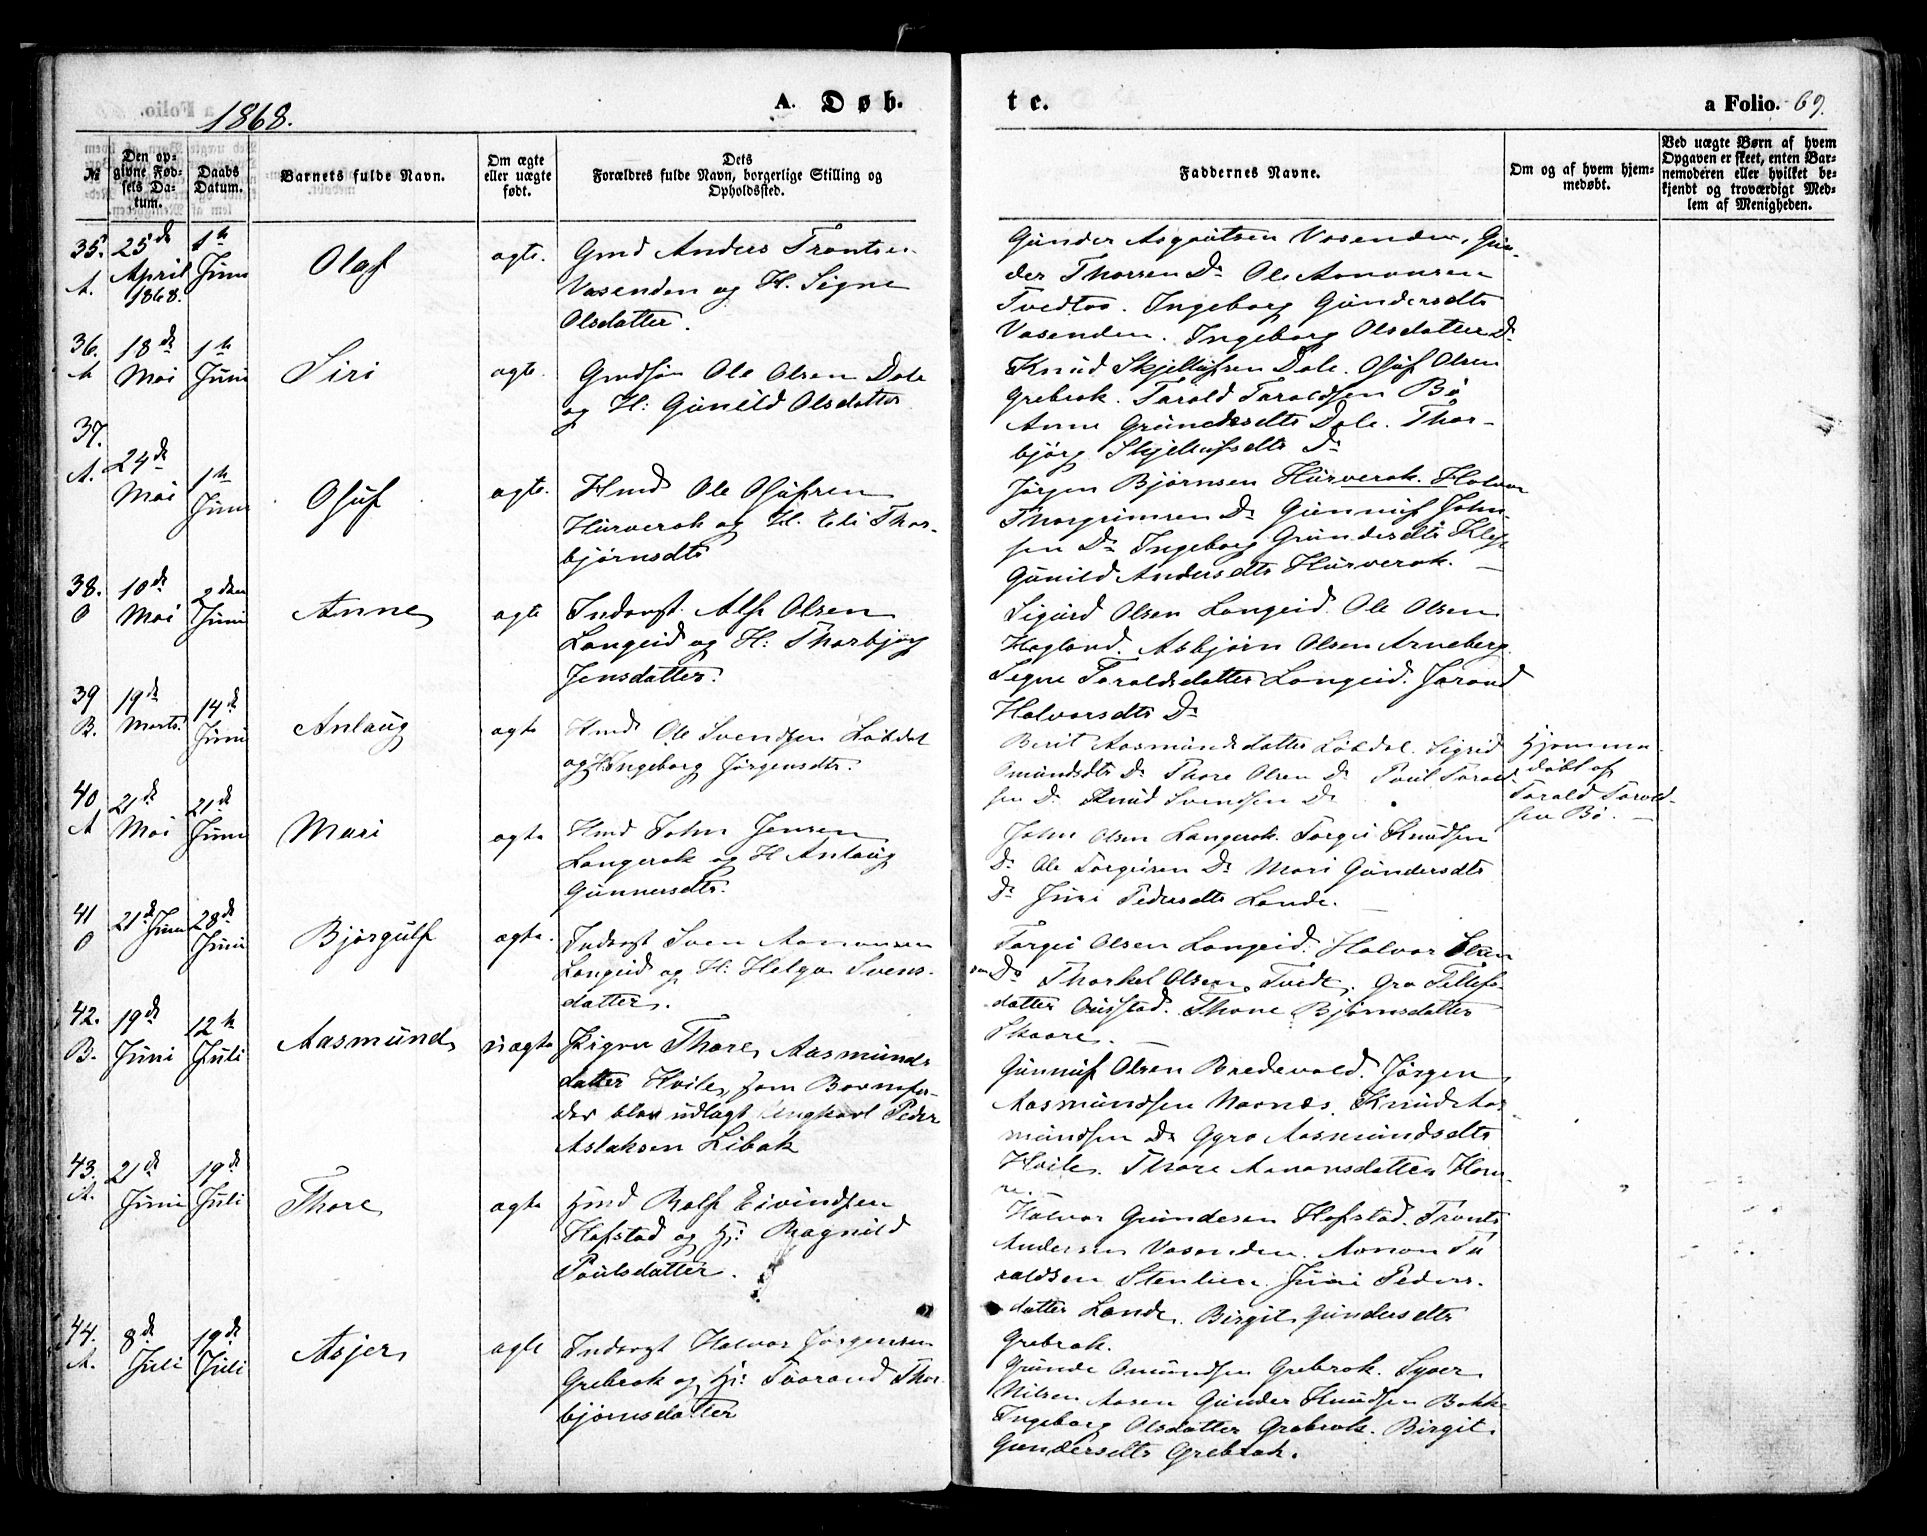 1868.
A. Døb-
te.
a Folio. 69.
№
Den opgivne Fødsels Datum.
Daabs Datum.
Barnets fulde Navn.
Om ægte eller uægte født.
Dets Forældres fulde Navn, borgerlige Stilling og Opholdssted.
Faddernes Navne.
Om og af hvem hjemmedøbt.
Ved uægte Børn af hvem Opgaven er skeet, enten Barnemoderen eller hvilket bekjendt og troværdigt Medlem af Menigheden.
35. A.
25de April 1868.
1ste Juni
Olaf
ægte.
Gmd Anders Trontsen
Vasenden og H. Signe
Olsdatter.
Gunder Asgoutsen Vasenden, Gun-
der Thorsen Do Ole Aanonsen
Tvedtos. Ingeborg Gundersdtr
Vasenden. Ingeborg Olsdatter Do
36. A
18de Mai
1ste Juni
Siri
ægte.
Gmdsøn Ole Olsen Dale
og H: Gunild Olsdatter
Knud Skjellufsen Dale. Osuf Olsen
Grebrok. Tarald Taraldsen Bø
Anne Gundersdtr Dale. Thor-
bjørg Skjellufsdtr Do
37. A.
24de Mai
1ste Juni
Osuf
ægte.
Hmd Ole Osufsen
Hurverok og H. Eli Thor-
bjørnsdtr
Jørgen Bjørnsen Hurverok. Halvor
Thorgrimsen Do Gunnuf John-
sen Do Ingeborg Gundersdtr Klep
Gunild Andersdtr Hurverok.
38. O
10de Mai
2den Juni
Anne
ægte
Inderst Alf Olsen
Langeid og H: Thorbjørg
Jensdatter.
Sigurd Olsen Langeid. Ole Olsen
Hagland. Asbjørn Olsen Arneberg
Signe Taraldsdatter Langeid. Jorand
Halvorsdtr Do
39 B.
19de Marts.
14de Juni
Anlaug
ægte
Hmd Ole Svendsen Løkdal
og H. Ingeborg Jørgensdtr.
Berit Aasmundsdatter Løkdal. Sigrid
Omundsdtr Do Thore Olsen Do Poul Tarald-
sen Do Knud Svendsen Do
Hjemme-
døbt af
Tarald Tarald-
sen Bø.
40 A
21de Mai
21de Juni
Mari
ægte
Hmd John Jensen
Langerak og H Anlaug
Gunnersdtr.
John Olsen Langerok. Torgei Knudsen
Do Ole Torgeisen Do Mari Gundersdtr
Do Juri Pedersdtr Lande.
41 O
21de Juni
28de Juni
Bjørgulf
ægte.
Inderst Sven Aanonsen
Langeid og H: Helga Svens-
datter.
Torgei Olsen Langeid. Halvor
Do Thorkel Olsen Tvedt. Gro Tellefs-
datter Ousstad. Thone Bjørnsdatter
Skaare.
42. B.
19de Juni
12te Juli
Aasmund
uægte
Pigen Thore Aasmunds-
datter Hvile, som Barnefa-
der blev udlagt Ungkarl Peder
Aslaksen Libak
Gunnuf Olsen Bredevold. Jørgen
Aasmundsen Naanes. Knud Aas-
mundsen Do Gyro Aasmundsdtr
Hvile. Thore Aanonsdatter Hom-
me.
43. A.
21de Juni
19de Juli
Thore
ægte
Hmd Rolf Eivindsen
Hofstad og H: Ragnild
Poulsdatter.
Halvor Gundersen Hofstad. Tront
Andersen Vasenden. Aanon Ta-
raldsen Stenlien. Juri Peders-
datter Lande. Birgit Gundersdtr
Grebrok.
44. A.
8de Juli
19de Juli
Asjer
ægte
Inderst Halvor Jørgensen
Grebrok og H: Taarand Thor-
bjørnsdatter
Gunde Omundsen Grebrok. Syver
Nilsen Aasen Gunder Knudsen Bakke
Ingeborg Olsdatter Grebrok. Birgit
Gundersdtr Grebrok.